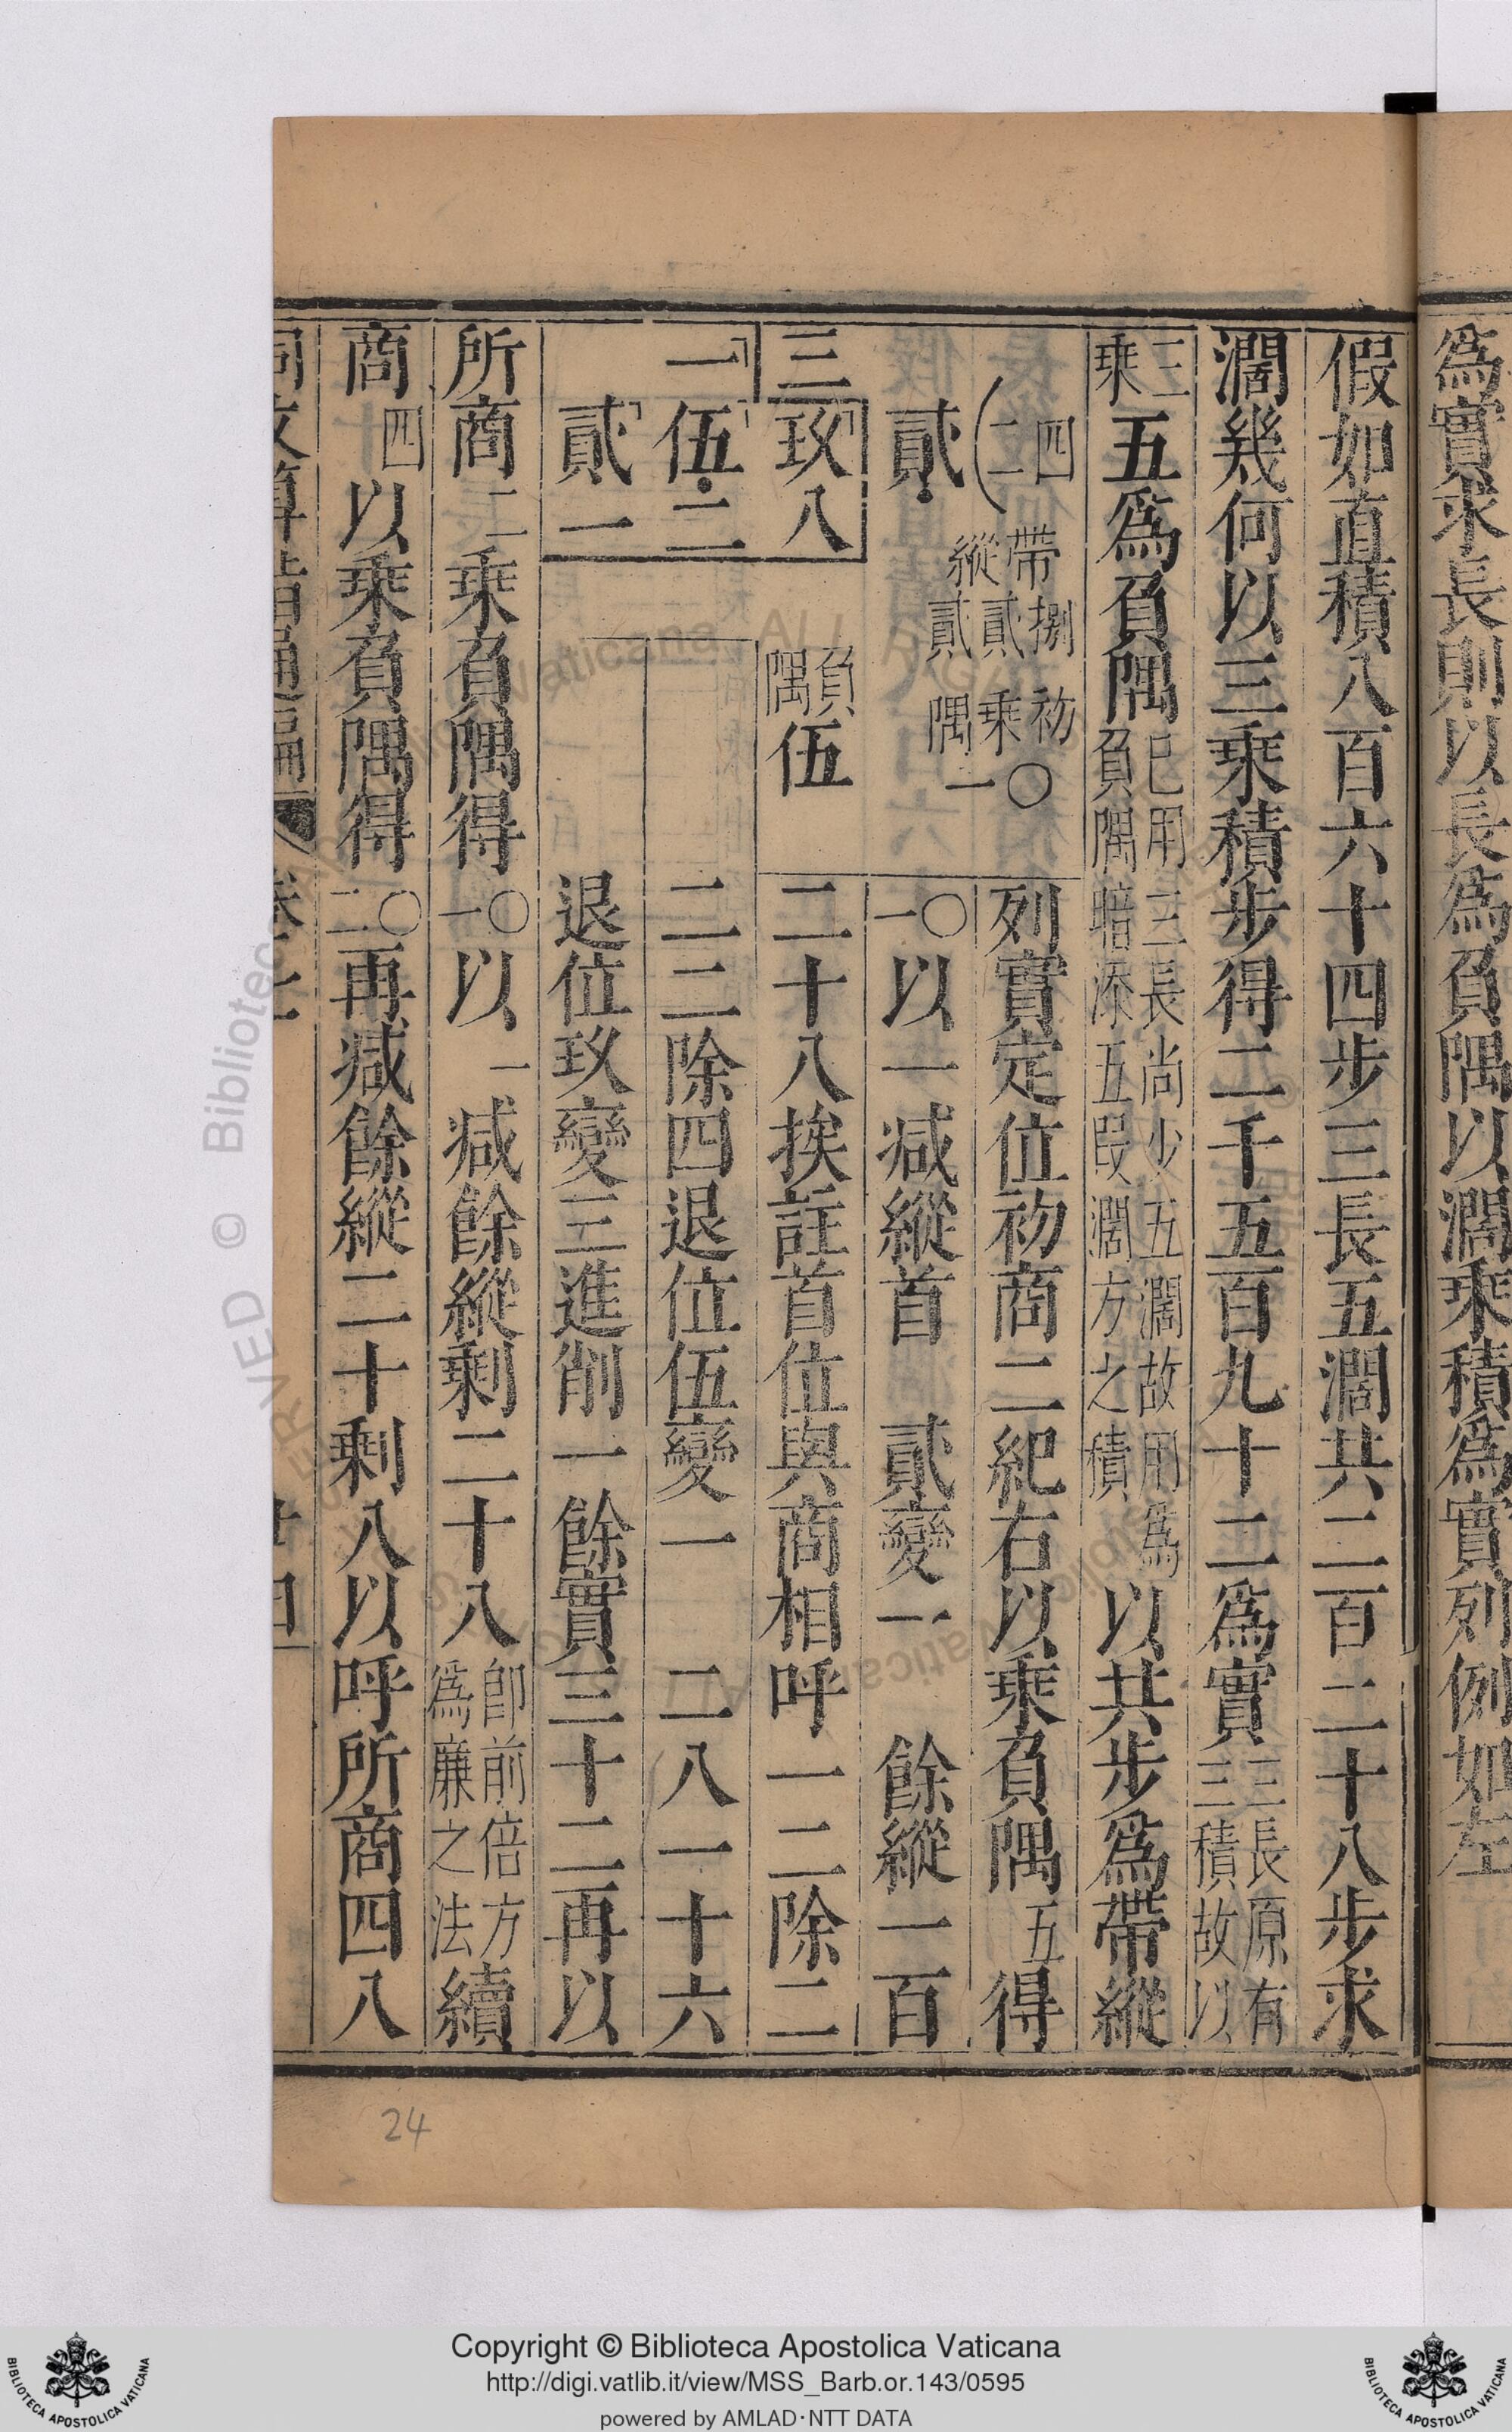 為實求長則以長為負隅以濶乘積為實列例如左
假如直積八百六十四步三長五濶共二百二十八步求
濶幾何以三乘積步得二千五百九十二為實三長原有三積故以
三乘五為負隅已用三長尚少五濶故用為負隅暗添五段濶方之積以共步為帶縱
四二
帶縱捌貳貳
初乘隅〇一
貳
三玖八
一伍二
貳一
負隅伍
列實定位初商二紀右以乘負隅五得
〇一以一减縱首貳變一餘縱一百
二十八挨註首位與商相呼一二除二
二二除四退位伍變一二八一十六
退位玖變三進削一餘實三十二再以
所商二乘負隅得〇一以一减餘縱剩二十八卽前倍方為廉之法續
商四以乘負隅得〇二再减餘縱二十剩八以呼所商四八
同文算指通編 卷七 廿四
24
Copyright © Biblioteca Apostolica Vaticana
http://digi.vatlib.it/view/MSS_Barb.or.143/0595
powered by AMLAD·NTT DATA
BIBLIOTECA APOSTOLICA VATICANA
BIBLIOTECA APOSTOLICA VATICANA